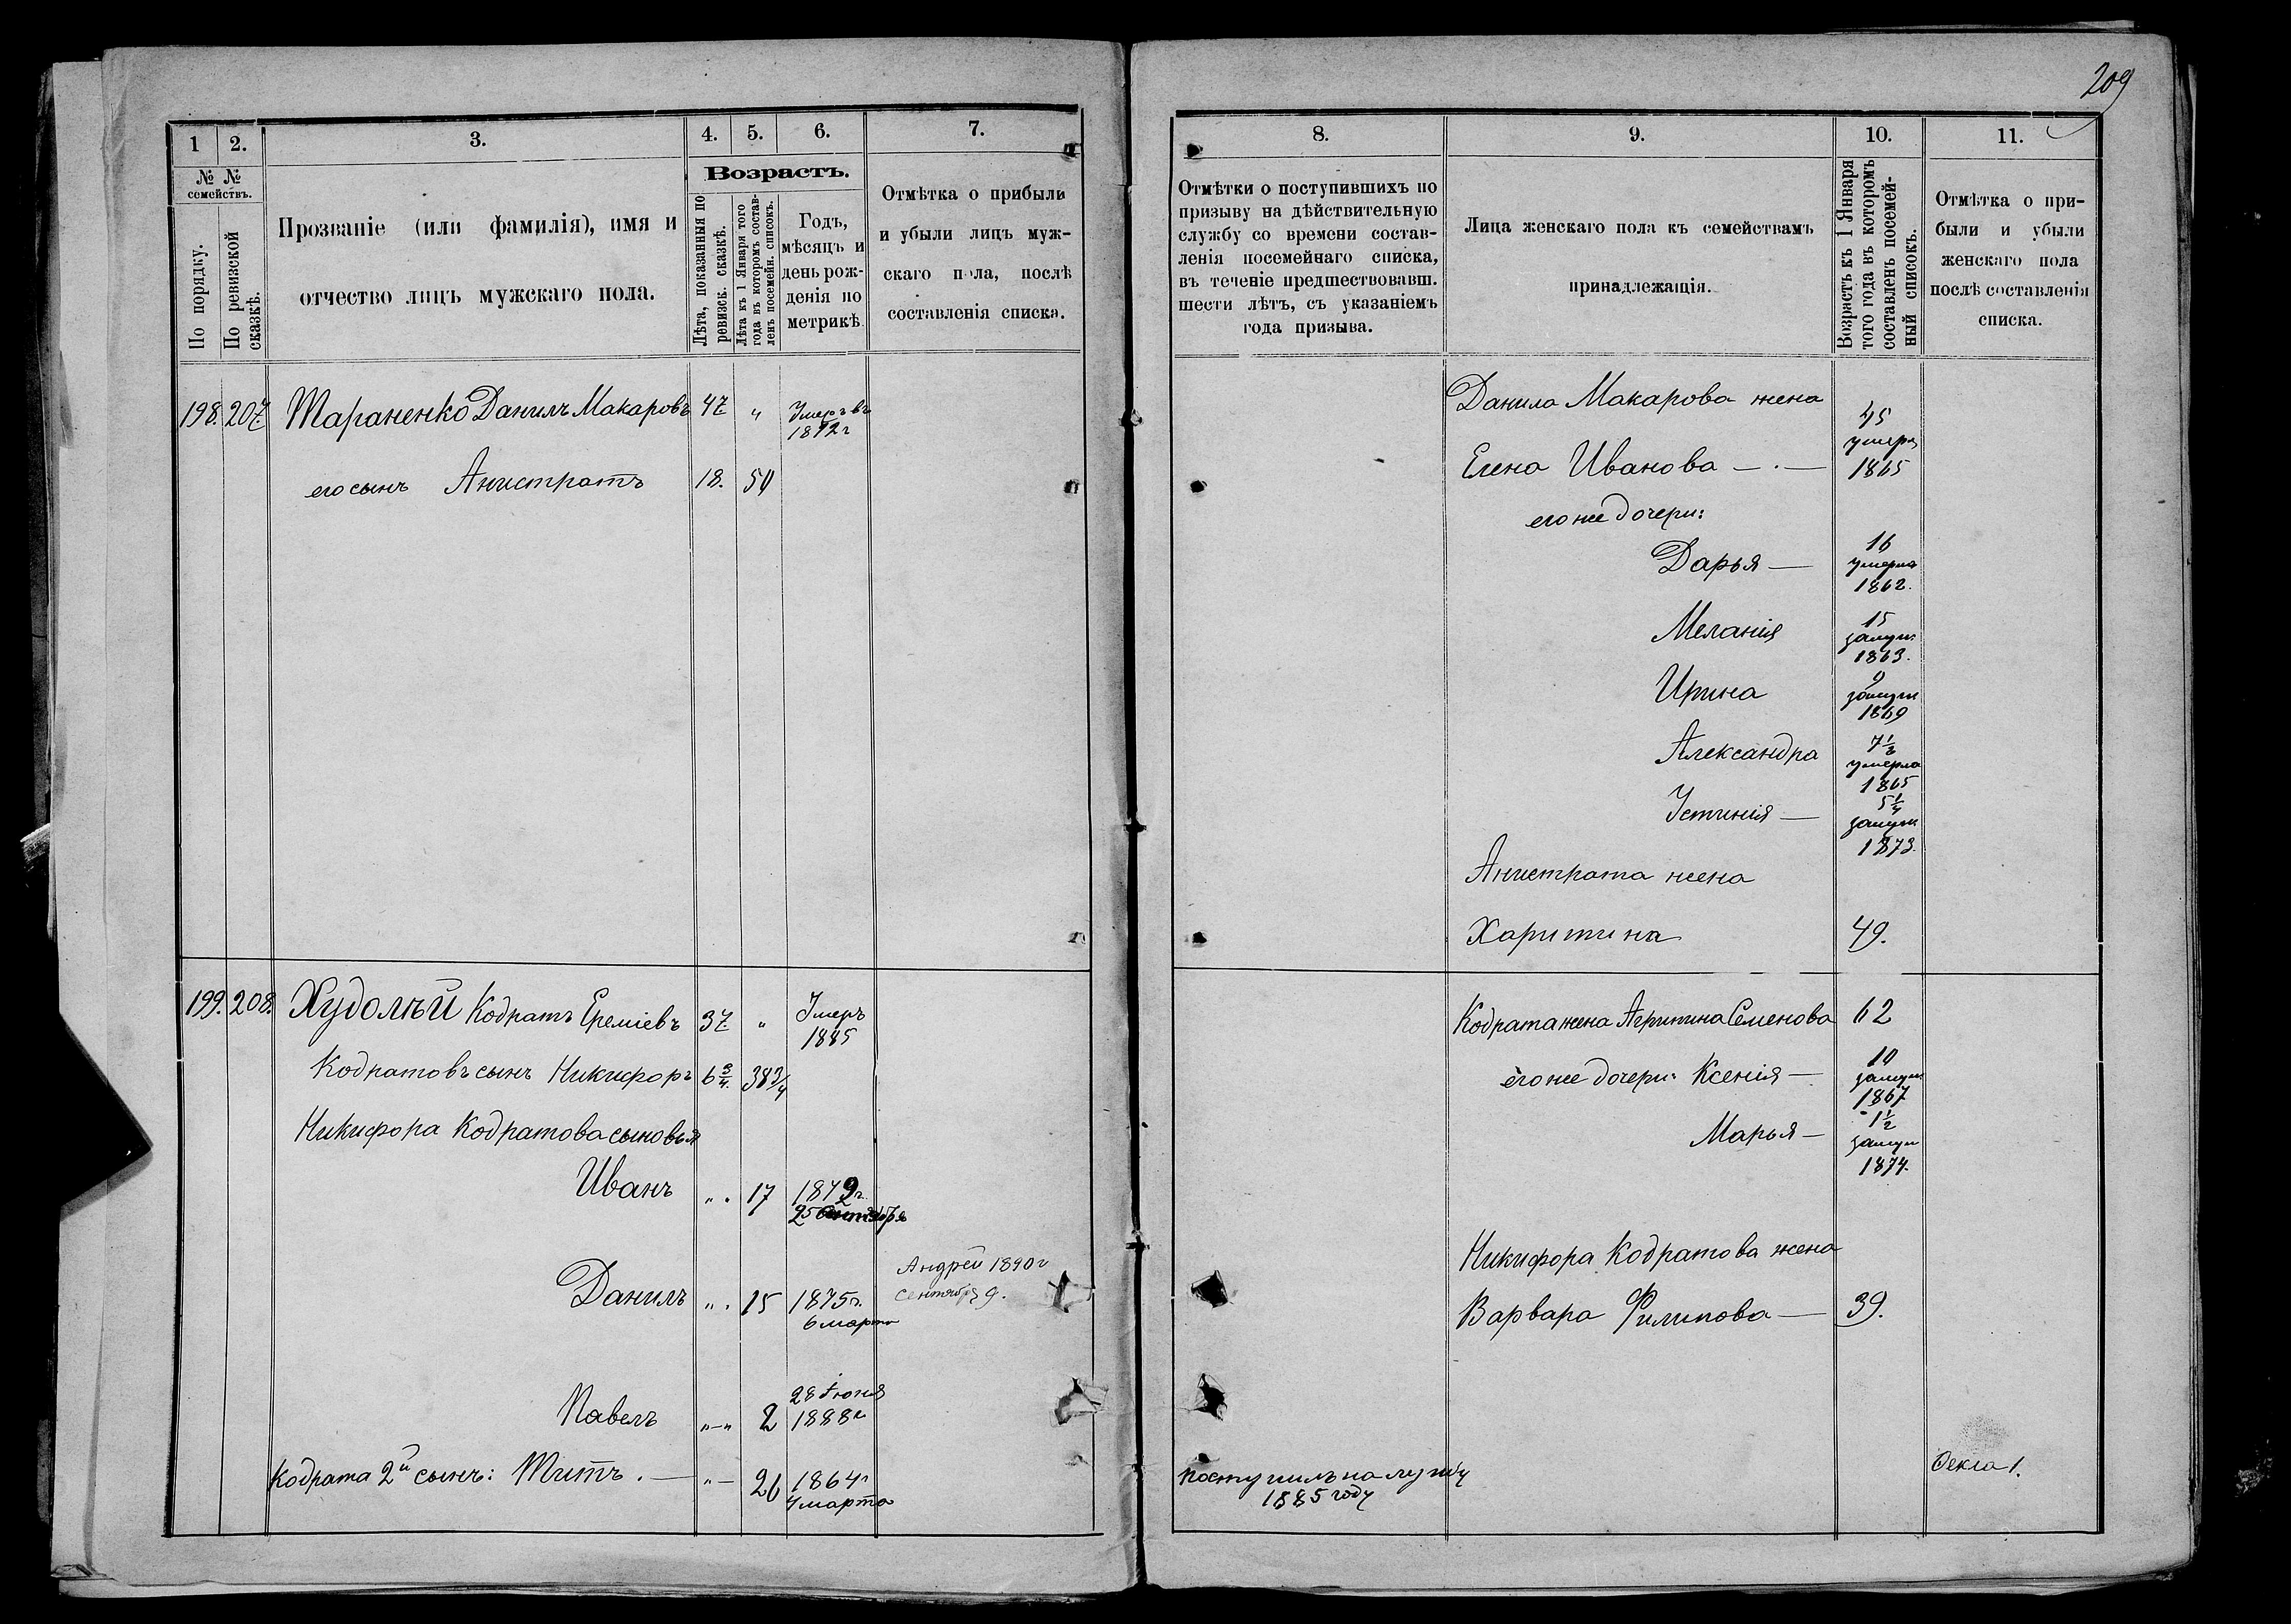 209
1
2.
3.
4.
5.
6.
7.
№ №
семействъ.
По порядку.
По ревизской
сказкѣ.
Прозваніе (или фамилія), имя и
отчество лицъ мужскаго пола.
Возрастъ.
Лѣта, показанныя по
ревизск. сказкѣ.
Лѣта къ 1 Января того
года въ которомъ состав-
ленъ посемейн. списокъ.
Годъ,
мѣсяцъ и
день рож-
денія по
метрикѣ
Отмѣтка о прибыли
и убыли лицъ муж-
скаго пола, послѣ
составленія списка.
198. 207. Тараненко Данилъ Макаровъ 47 "
Умеръ въ
его сынъ Анистратъ 18. 50
199. 208. Худолѣй Кодратъ Ереміевъ 37 " Умеръ
1885
Кодратовъ сынъ Никифоръ 6 3/4. 38 3/4
Никифора Кодратова сыновья
Иванъ " . 17
25
Данилъ " . 15 1875г.
6 марта
Андрей 1890г
сентября 9.
Павелъ "–" 2 28 Іюня
1888г
Кодрата 2й сынъ: Титъ. — "– 26 1864г
4 марта
8.
9.
10.
11.
Отмѣтки о поступившихъ по
призыву на дѣйствительную
службу со времени состав-
ленія посемейнаго списка,
въ теченіе предшествовавш.
шести лѣтъ, съ указаніемъ
года призыва.
Лица женскаго пола къ семействамъ
принадлежащія.
Возрастъ къ 1 Января
того года въ которомъ
составленъ посемей-
ный списокъ.
Отмѣтка о при-
были и убыли
женскаго пола
послѣ составленія
списка.
Данила Макарова жена
Елена Иванова — . — 45
умерл
1865
его же дочери:
Дарья — 16
умерла
1862.
Меланія 15
замуж
1863.
Ирина 9
замуж
1869
Александра 7 1/2
умерла
1865
Устинія — 5 1/4
замуж
1873.
Анистрата жена
Харитина 49.
Кодрата жена Агрипина Семенова 62
его же дочери: Ксенія — 10
замуж
1867
Марья — 1 1/2
замуж
1874.
Никифора Кодратова жена
Варвара Филипова — 39.
поступилъ на службу
1885 году
Фекла 1.